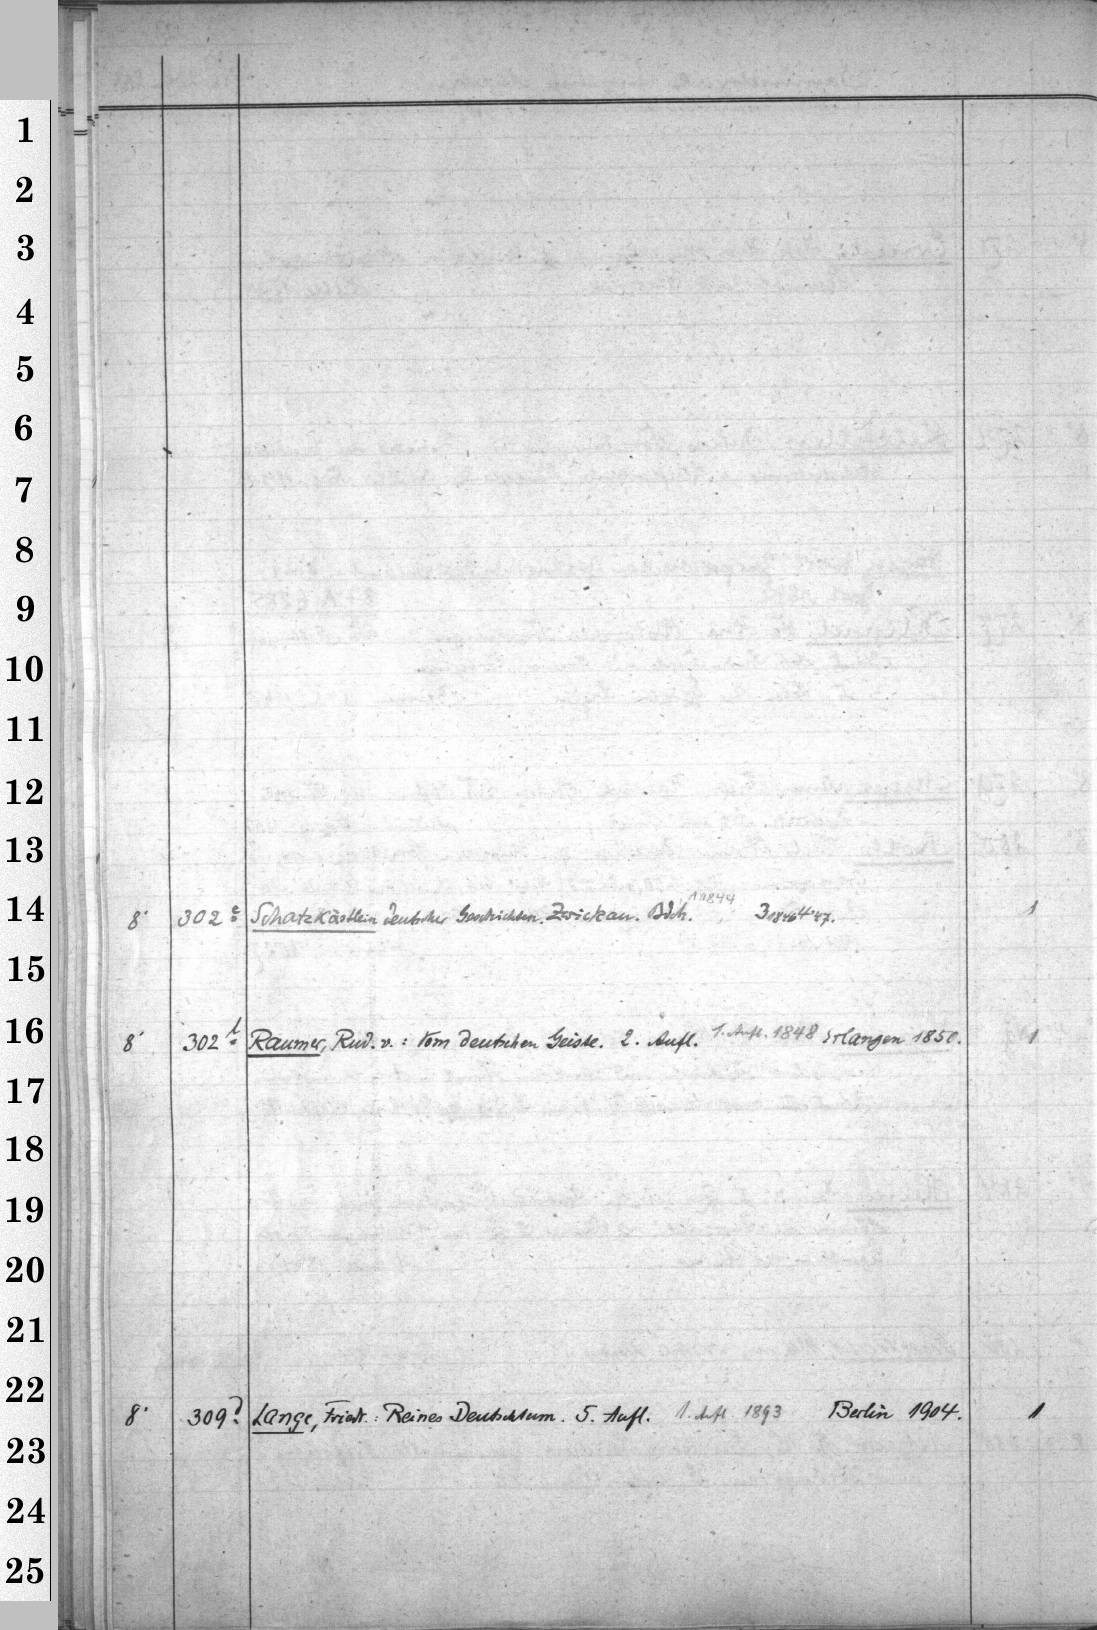 1
2
3
4
5
6
7
8
9
10
11
12
13
14
8° 302 e Schatzkästlein deutscher Geschichten. Zwickau. Bdch. 1 1844 3 1846 4 '47. 1
15
16
8° 302 l Raumer, Rud. v.: Vom deutschen Geiste. 2. Aufl. 1. Aufl. 1848 Erlangen 1850. 1
17
18
19
20
21
22
8° 309 d Lange, Friedr.: Reines Deutschtum. 5. Aufl. 1. Aufl. 1893 Berlin 1904. 1
23
24
25